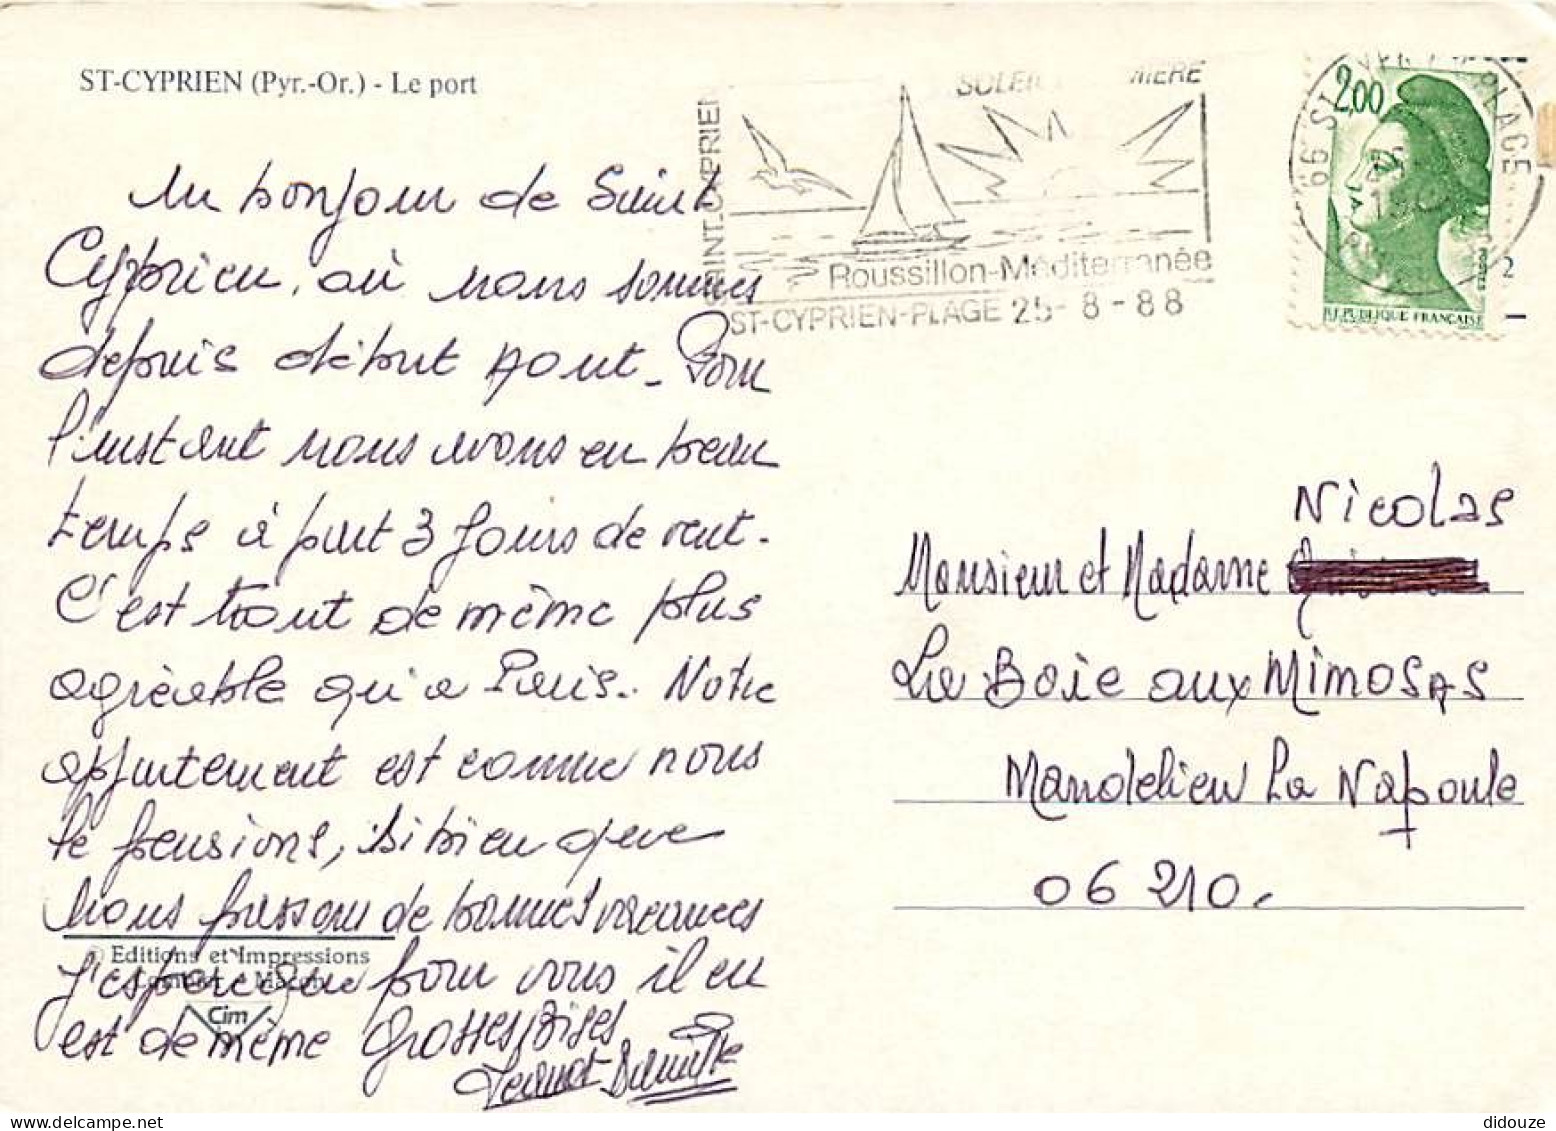 ST-CYPRIEN (Pyr.-Or.) - Le port
un bonjour de Saint
Cyprien, où nous sommes
depuis début Aout - Pour
l'instant nous avons eu beau
temps à part 3 jours de vent.
C'est tout de même plus
agréable qu'à Paris. Notre
appartement est comme nous
le pensions, si bien que
nous passons de bonnes vacances
J'espère que pour vous il en
est de même Grosses Bises
© Editions et Impressions
Combier - Macon
Cim
SAINT-CYPRIEN
SOLEIL MIERE
Roussillon-Méditerranée
ST-CYPRIEN-PLAGE 25-8-88
66 ST CYPRIEN PLAGE
2,00
POSTES
REPUBLIQUE FRANÇAISE
2
Nicolas
Monsieur et Madame
La Boie aux MimosAs
Mandelieu La Napoule
06 210.
didouze